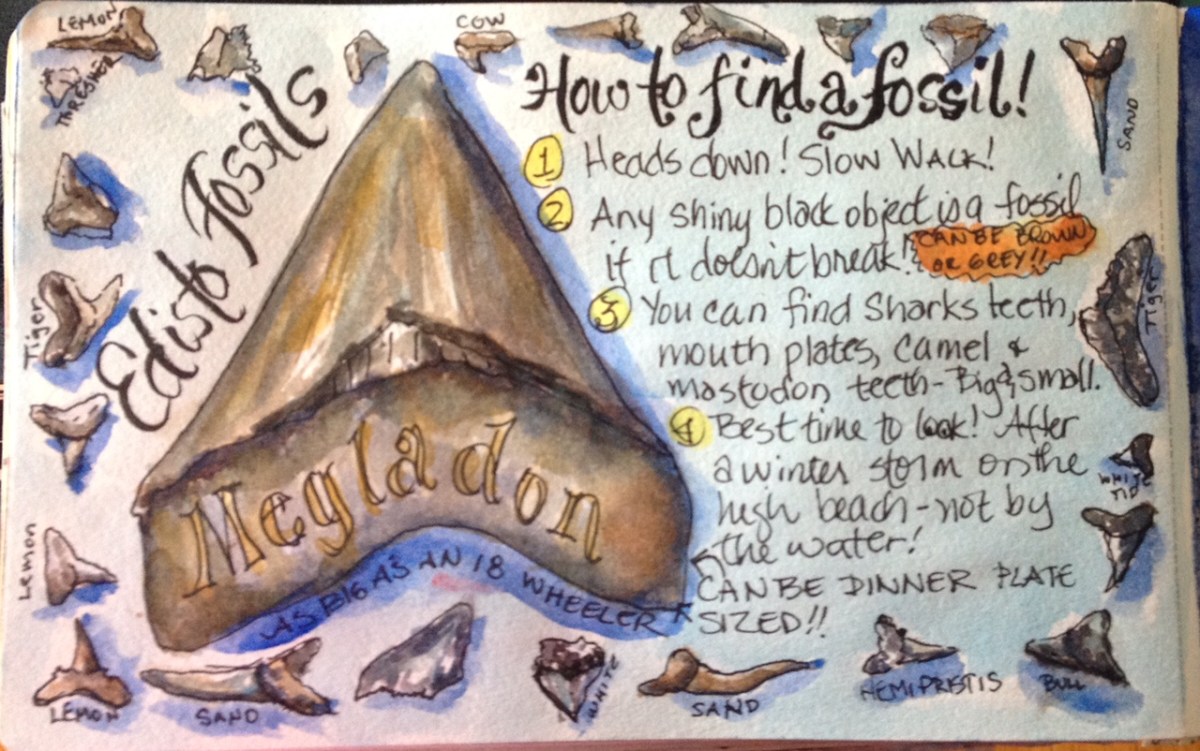 LEMON
THRESHER
COW
SAND
Edisto Fossils
How to find a fossil!
1 Heads down! Slow Walk!
2 Any shiny black object is a fossil
if it doesn't break!
CAN BE BROWN
OR GREY!!
3 You can find Sharks teeth,
mouth plates, camel &
mastodon teeth - Big & small.
4 Best time to look! After
a winter storm on the
high beach - not by
the water!
CAN BE DINNER PLATE
SIZED!!
Megladon
AS BIG AS AN 18 WHEELER
Tiger
Lemon
Tiger
WHITE
TIP
LEMON
SAND
WHITE
SAND
HEMIPRISTIS
BULL